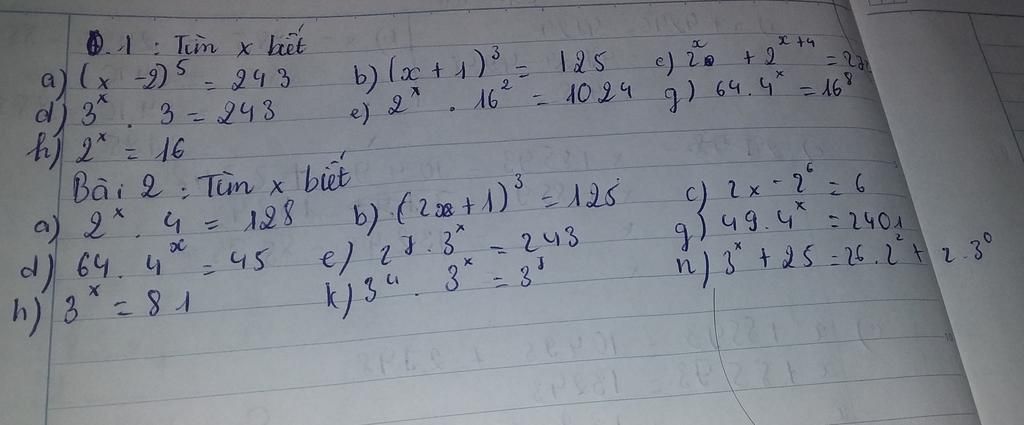 B.1 : Tìm x biết
a) (x - 2)⁵ = 243 b) (x + 1)³ = 125 c) 2ˣ + 2ˣ⁺⁴ = 27
d) 3ˣ . 3 = 243 e) 2ˣ . 16² = 1024 g) 64. 4ˣ = 16⁸
h) 2ˣ = 16
Bài 2 : Tìm x biết
a) 2ˣ . 4 = 128 b) (2x + 1)³ = 125 c) 2x - 2⁶ = 6
d) 64. 4ˣ = 45 e) 27. 3ˣ = 243 g) 49. 4ˣ = 2401
h) 3ˣ = 81 k) 3⁴ . 3ˣ = 3⁷ n) 3ˣ + 25 = 26. 2² + 2. 3⁰